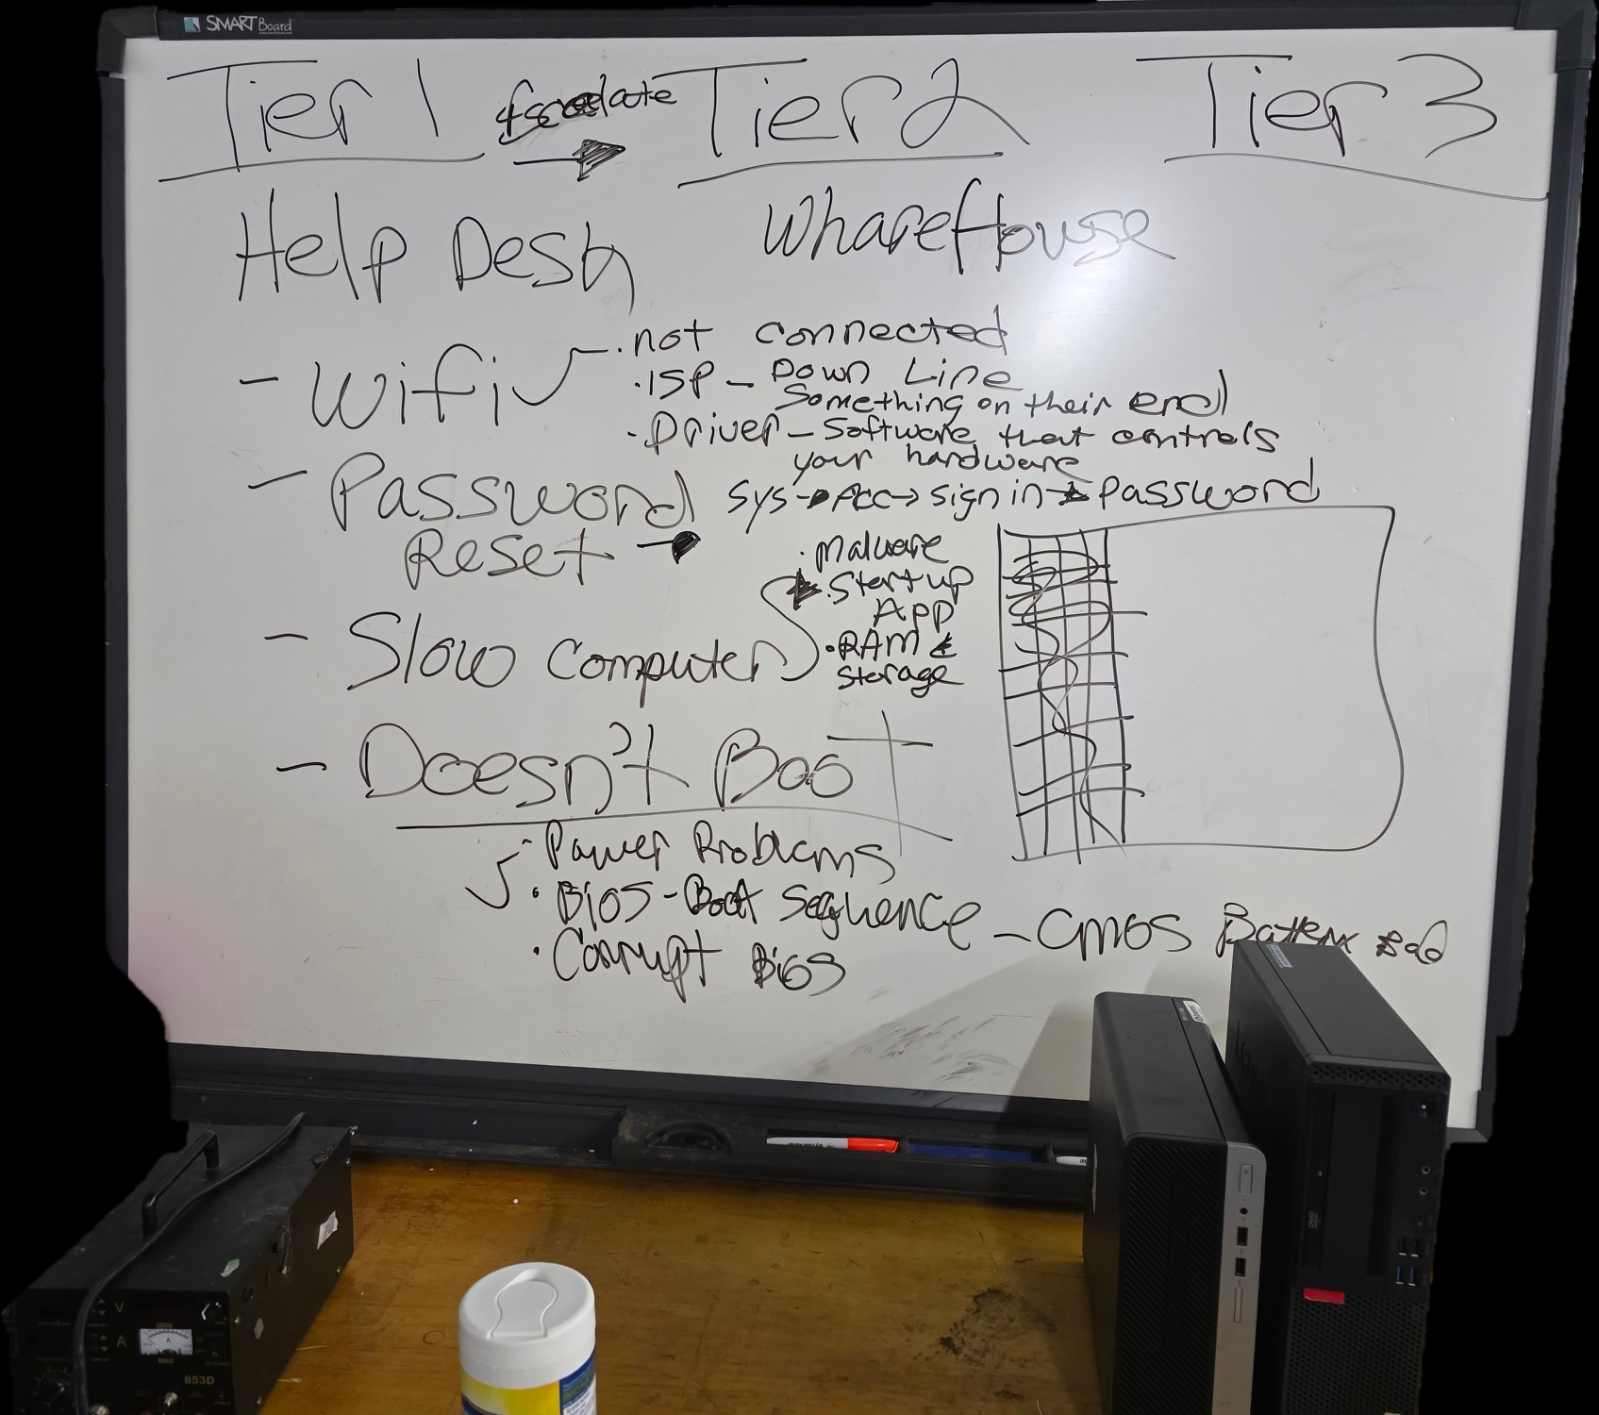 SMART Board
Tier 1 Escalate Tier 2 Tier 3
Help Desk
WhareHouse
- Wifi
· not connected
· ISP - Down Line
Something on their end
· Driver - Software that controls
your hardware
- Password
Reset
Sys → Acc → sign in → Password
- Slow Computer
· Malware
· Startup
App
· RAM &
Storage
- Doesn't Boot
· Power Problems
· Bios - Boot Sequence - CMOS Battery Bad
· Corrupt Bios
V
A
853D